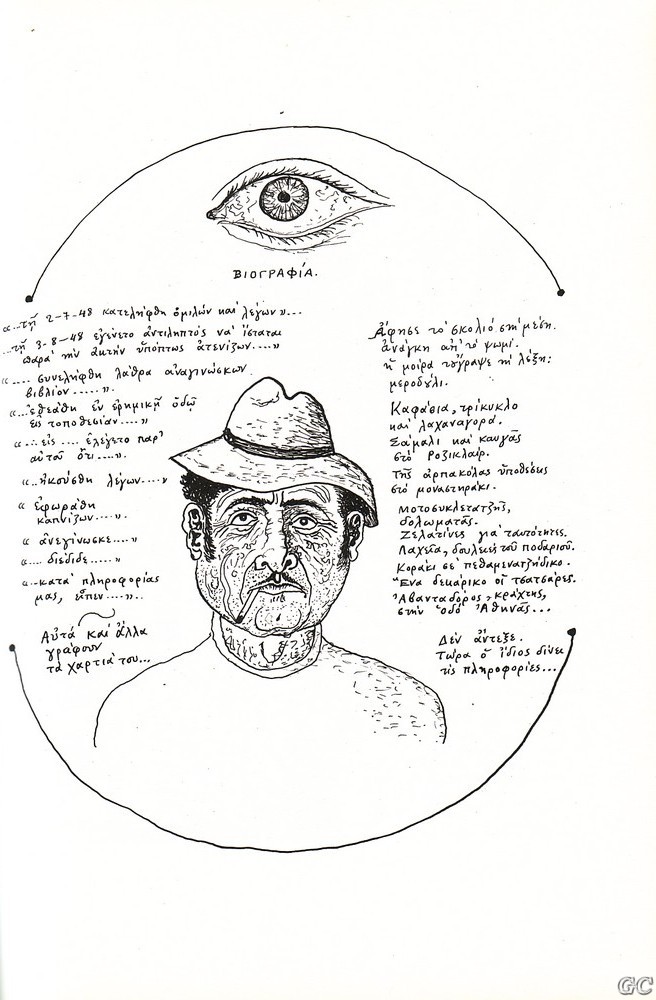 ΒΙΟΓΡΑΦΙΑ.
«...τῇ 2-7-48 κατελήφθη ὁμιλῶν καί λέγων»...
...τῇ 3-8-48 ἐγένετο ἀντιληπτός νά ἵσταται
παρά τήν ἀκτήν ὑπόπτως ἀτενίζων....»
«.... συνελήφθη λάθρα ἀναγινώσκων
βιβλίον.....».
«...ἐθεάθη ἐν ἐρημικῇ ὁδῷ
εἰς τοποθεσίαν....»
«...εἰς .... ἐλέγετο παρ'
αὐτοῦ ὅτι....».
«..Ἠκούσθη λέγων....»
«Ἐφωράθη
καπνίζων....»
«ἀνεγίνωσκε....»
«....διέδιδε.....»
«..κατά πληροφορίας
μας, εἶπεν....».
Αὐτά καί ἄλλα
γράφουν
τά χαρτιά του...
Ἄφησε τό σκολιό στή μέση.
ἀνάγκη ἀπ' τό ψωμί.
ἡ μοίρα τοὔγραψε τή λέξη:
μεροδούλι.
Καφάσια, τρίκυκλο
καί λαχαναγορά.
Σάμαλι καί καυγᾶς
στό Ροζικλαίρ.
Τῆς ἁρπακόλας ὑποθέσεις
στό μοναστηράκι.
μοτοσυκλετατζῆς,
δολωματᾶς.
Ζελατίνες γιά ταυτότητες.
Λαχεῖα, δουλειές τοῦ ποδαριοῦ.
Κοράκι σέ πεθαμενατζήδικο.
Ἕνα δεκάρικο οἱ τσατσάρες.
Ἀβανταδόρος, κράχτης,
στήν ὁδό Ἀθηνᾶς...
Δέν ἄντεξε.
Τώρα ὁ ἴδιος δίνει
τίς πληροφορίες...
GC